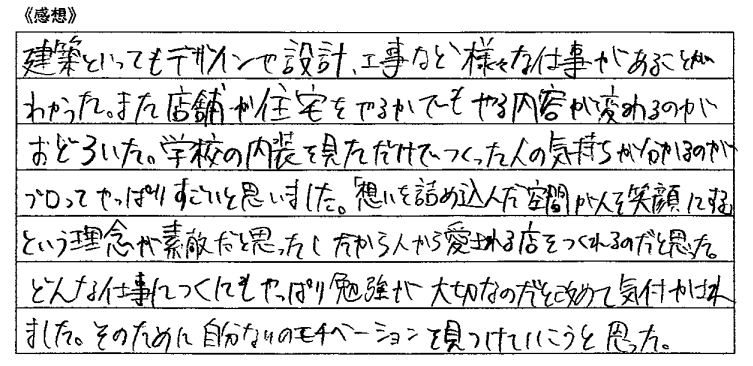 《感想》
建築といってもデザインや設計、工事など様々な仕事があることが
わかった。また店舗か住宅をやるかでもやる内容が変わるのが
おどろいた。学校の内装を見ただけでつくった人の気持ちが分かるのが
プロってやっぱりすごいと思いました。「想いを詰め込んだ空間が人を笑顔にする
という理念が素敵だと思ったしだから人から愛される店をつくれるのだと思った。
どんな仕事につくにもやっぱり勉強が大切なのだと改めて気付かされ
ました。そのために自分なりのモチベーションを見つけていこうと思った。